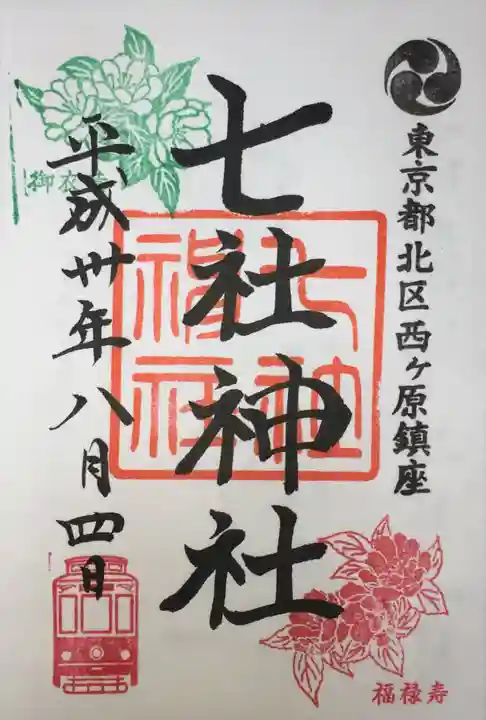 東京都北区西ヶ原鎮座
七社神社
七社神社
平成卅年八月四日
福禄寿